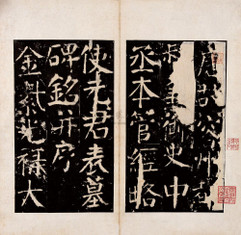 唐故容州都
兼御史中
丞本管經略
使元君表墓
碑銘并序
金紫光祿大